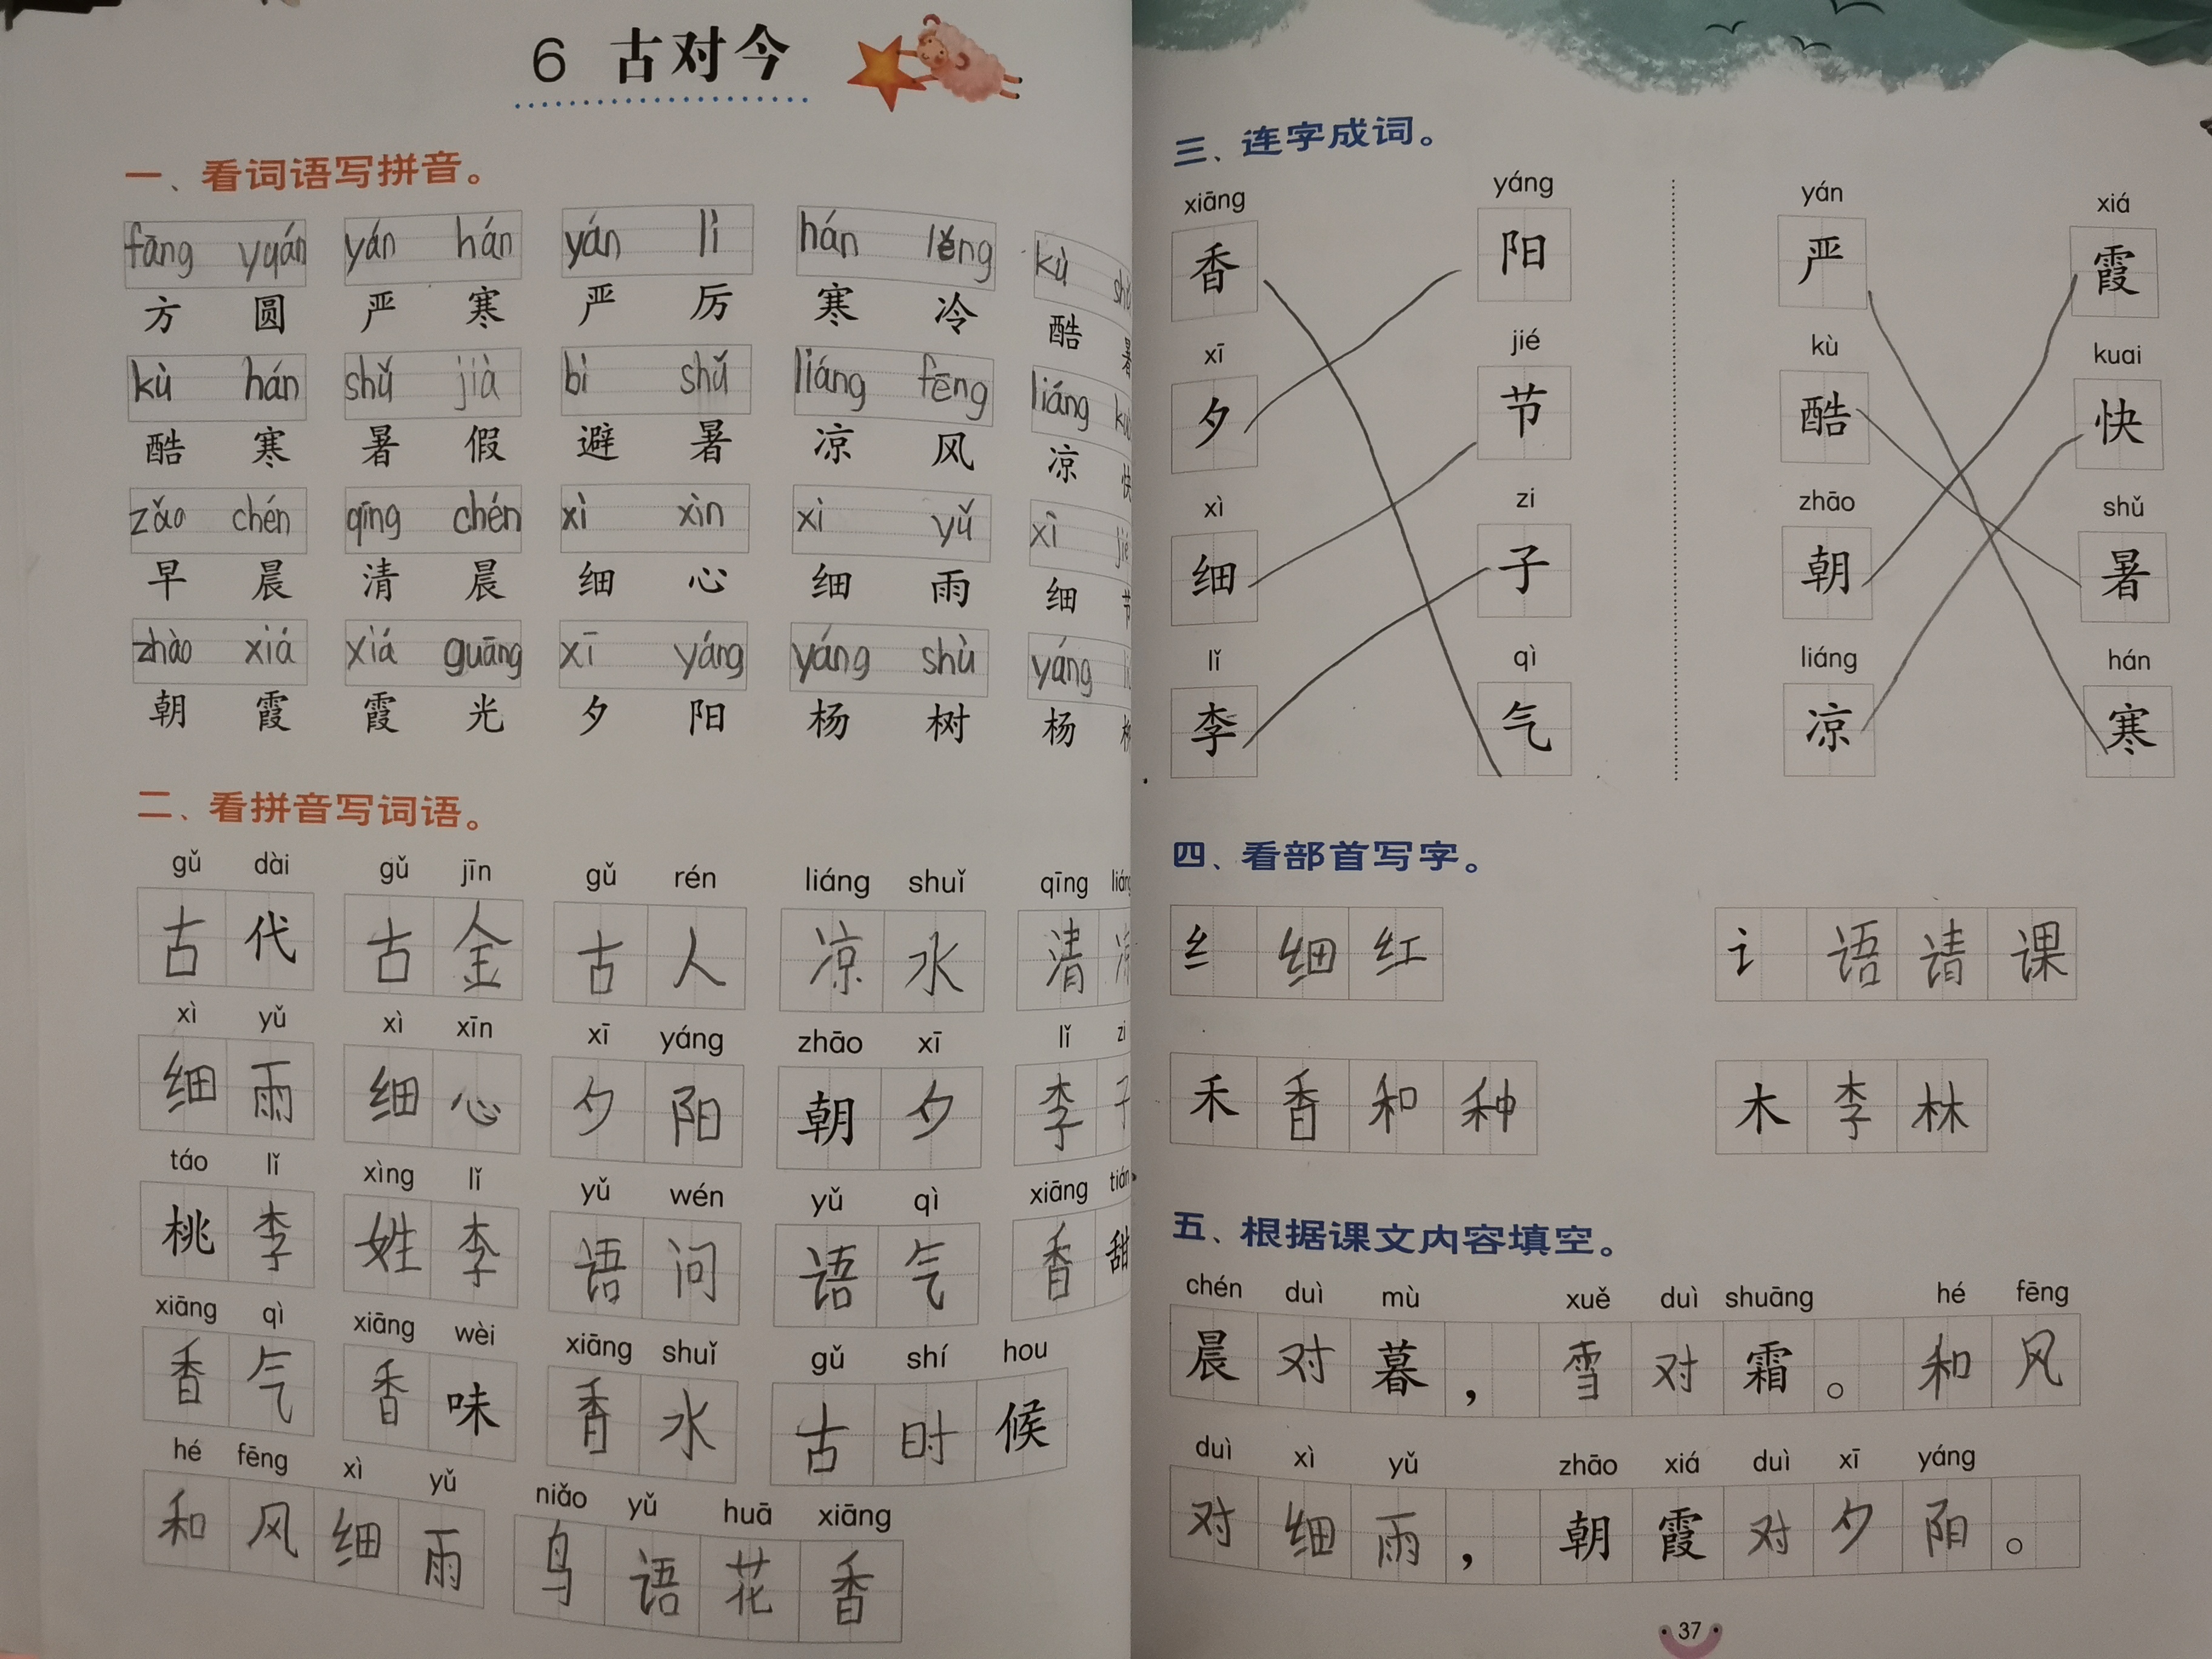 6 古对今
一、看词语写拼音。
fāng yuán yán hán yán lì hán lěng kù
方圆 严寒 严厉 寒冷 酷暑
kù hán shǔ jià bì shǔ liáng fēng liáng
酷寒 暑假 避暑 凉风 凉快
zǎo chén qīng chén xì xīn xì yǔ xì
早晨 清晨 细心 细雨 细节
zhāo xiá xiá guāng xī yáng yáng shù yáng
朝霞 霞光 夕阳 杨树 杨
二、看拼音写词语。
gǔ dài gǔ jīn gǔ rén liáng shuǐ qīng liáng
古代 古金 古人 凉水 清凉
xì yǔ xì xīn xī yáng zhāo xī lǐ zi
细雨 细心 夕阳 朝夕 李子
táo lǐ xìng lǐ yǔ wén yǔ qì xiāng tián
桃李 姓李 语问 语气 香甜
xiāng qì xiāng wèi xiāng shuǐ gǔ shí hou
香气 香味 香水 古时候
hé fēng xì yǔ niǎo yǔ huā xiāng
和风细雨 鸟语花香
三、连字成词。
xiāng yáng yán xiá
香 阳 严 霞
xī jié kù kuai
夕 节 酷 快
xì zi zhāo shǔ
细 子 朝 暑
lǐ qì liáng hán
李 气 凉 寒
四、看部首写字。
纟 细 红 讠 语 请 课
禾 香 和 种 木 李 林
五、根据课文内容填空。
chén duì mù xuě duì shuāng hé fēng
晨对暮，雪对霜。和风
duì xì yǔ zhāo xiá duì xī yáng
对细雨，朝霞对夕阳。
37